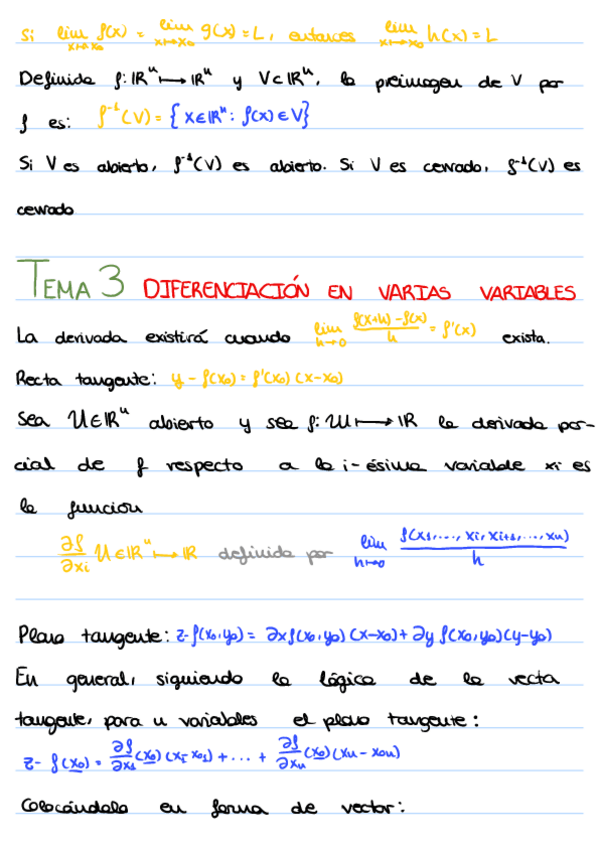 Si lim x→x₀ f(x) = lim x→x₀ g(x) = L, entonces lim x→x₀ h(x) = L
Definida f: ℝⁿ ⟼ ℝⁿ y V⊂ℝⁿ, la preimagen de V por
f es: f⁻¹(V) = { x∈ℝⁿ : f(x) ∈ V}
Si V es abierto, f⁻¹(V) es abierto. Si V es cerrado, f⁻¹(V) es
cerrado
TEMA 3 DIFERENCIACIÓN EN VARIAS VARIABLES
La derivada existirá cuando lim h→0 f(x+h) - f(x) / h = f'(x) exista.
Recta tangente: y - f(x₀) = f'(x₀) (x-x₀)
Sea U∈ℝⁿ abierto y sea f: U ⟼ ℝ la derivada par-
cial de f respecto a la i-ésima variable xi es
la función
∂f/∂xi U∈ℝⁿ ⟼ ℝ definida por lim h→0 f(x₁, ..., xi, xi+₁, ..., xn) / h
Plano tangente: z - f(x₀,y₀) = ∂x f(x₀,y₀) (x-x₀) + ∂y f(x₀,y₀)(y-y₀)
En general, siguiendo la lógica de la recta
tangente, para n variables el plano tangente:
z - f(x₀) = ∂f/∂x₁ (x₀) (x₁ x₀₁) + ... + ∂f/∂xn (x₀)(xn - x₀n)
Colocándolo en forma de vector: